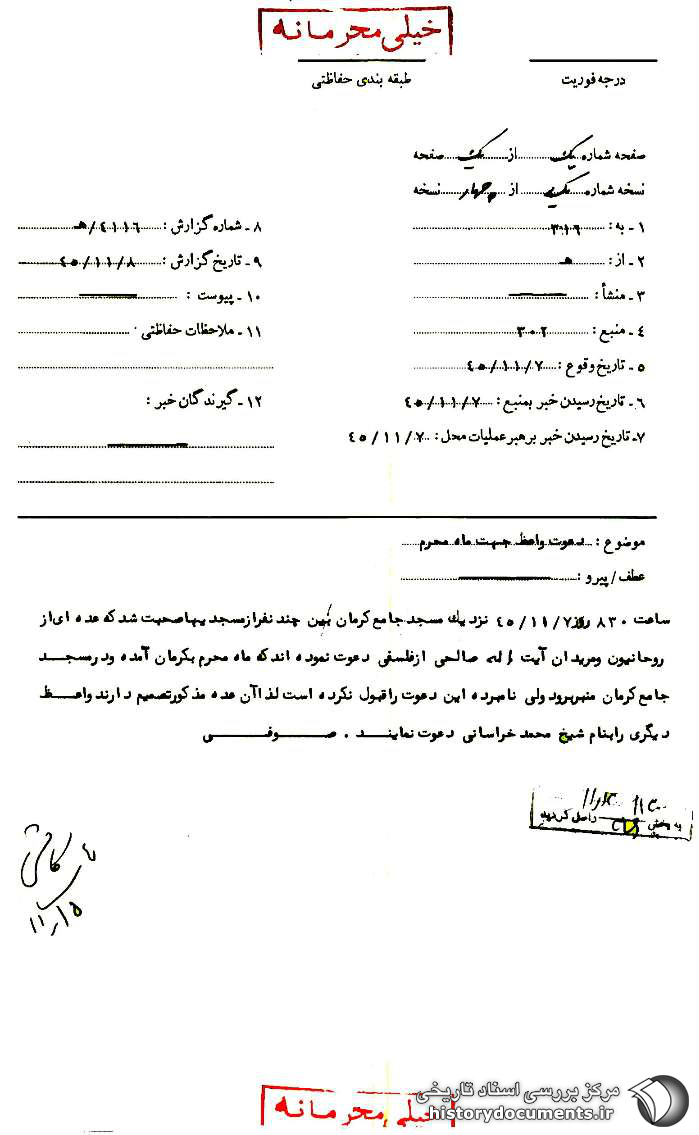 خیلی محرمانه
درجه فوریت
طبقه بندی حفاظتی
صفحه شماره یک از یک صفحه
نسخه شماره یک از چهار نسخه
۱ - به : ۳۱۶
۲ - از : هـ
۳ - منشأ :
۴ - منبع : ۳۰۲
۵ - تاریخ وقوع : ۴۵/۱۱/۷
۶ - تاریخ رسیدن خبر بمنبع : ۴۵/۱۱/۷
۷ - تاریخ رسیدن خبر برهبر عملیات محل : ۴۵/۱۱/۷
۸ - شماره گزارش : ۴۱۱۶/هـ
۹ - تاریخ گزارش : ۴۵/۱۱/۸
۱۰ - پیوست :
۱۱ - ملاحظات حفاظتی :
۱۲ - گیرندگان خبر :
موضوع : دعوت واعظ جهت ماه محرم
عطف/پیرو :
ساعت ۸۳۰ روز ۴۵/۱۱/۷ نزدیک مسجد جامع کرمان بین چند نفر از مسجدیها صحبت شد که عده ای از
روحانیون و مریدان آیت اله صالحی از فلسفی دعوت نموده اند که ماه محرم بکرمان آمده و در مسجد
جامع کرمان منبر برود ولی نامبرده این دعوت را قبول نکرده است لذا آن عده مذکور تصمیم دارند واعظ
دیگری را بنام شیخ محمد خراسانی دعوت نمایند . صوفی
به بخش واصل گردید
۱۱/۱۵
خیلی محرمانه
مرکز بررسی اسناد تاریخی
historydocuments.ir